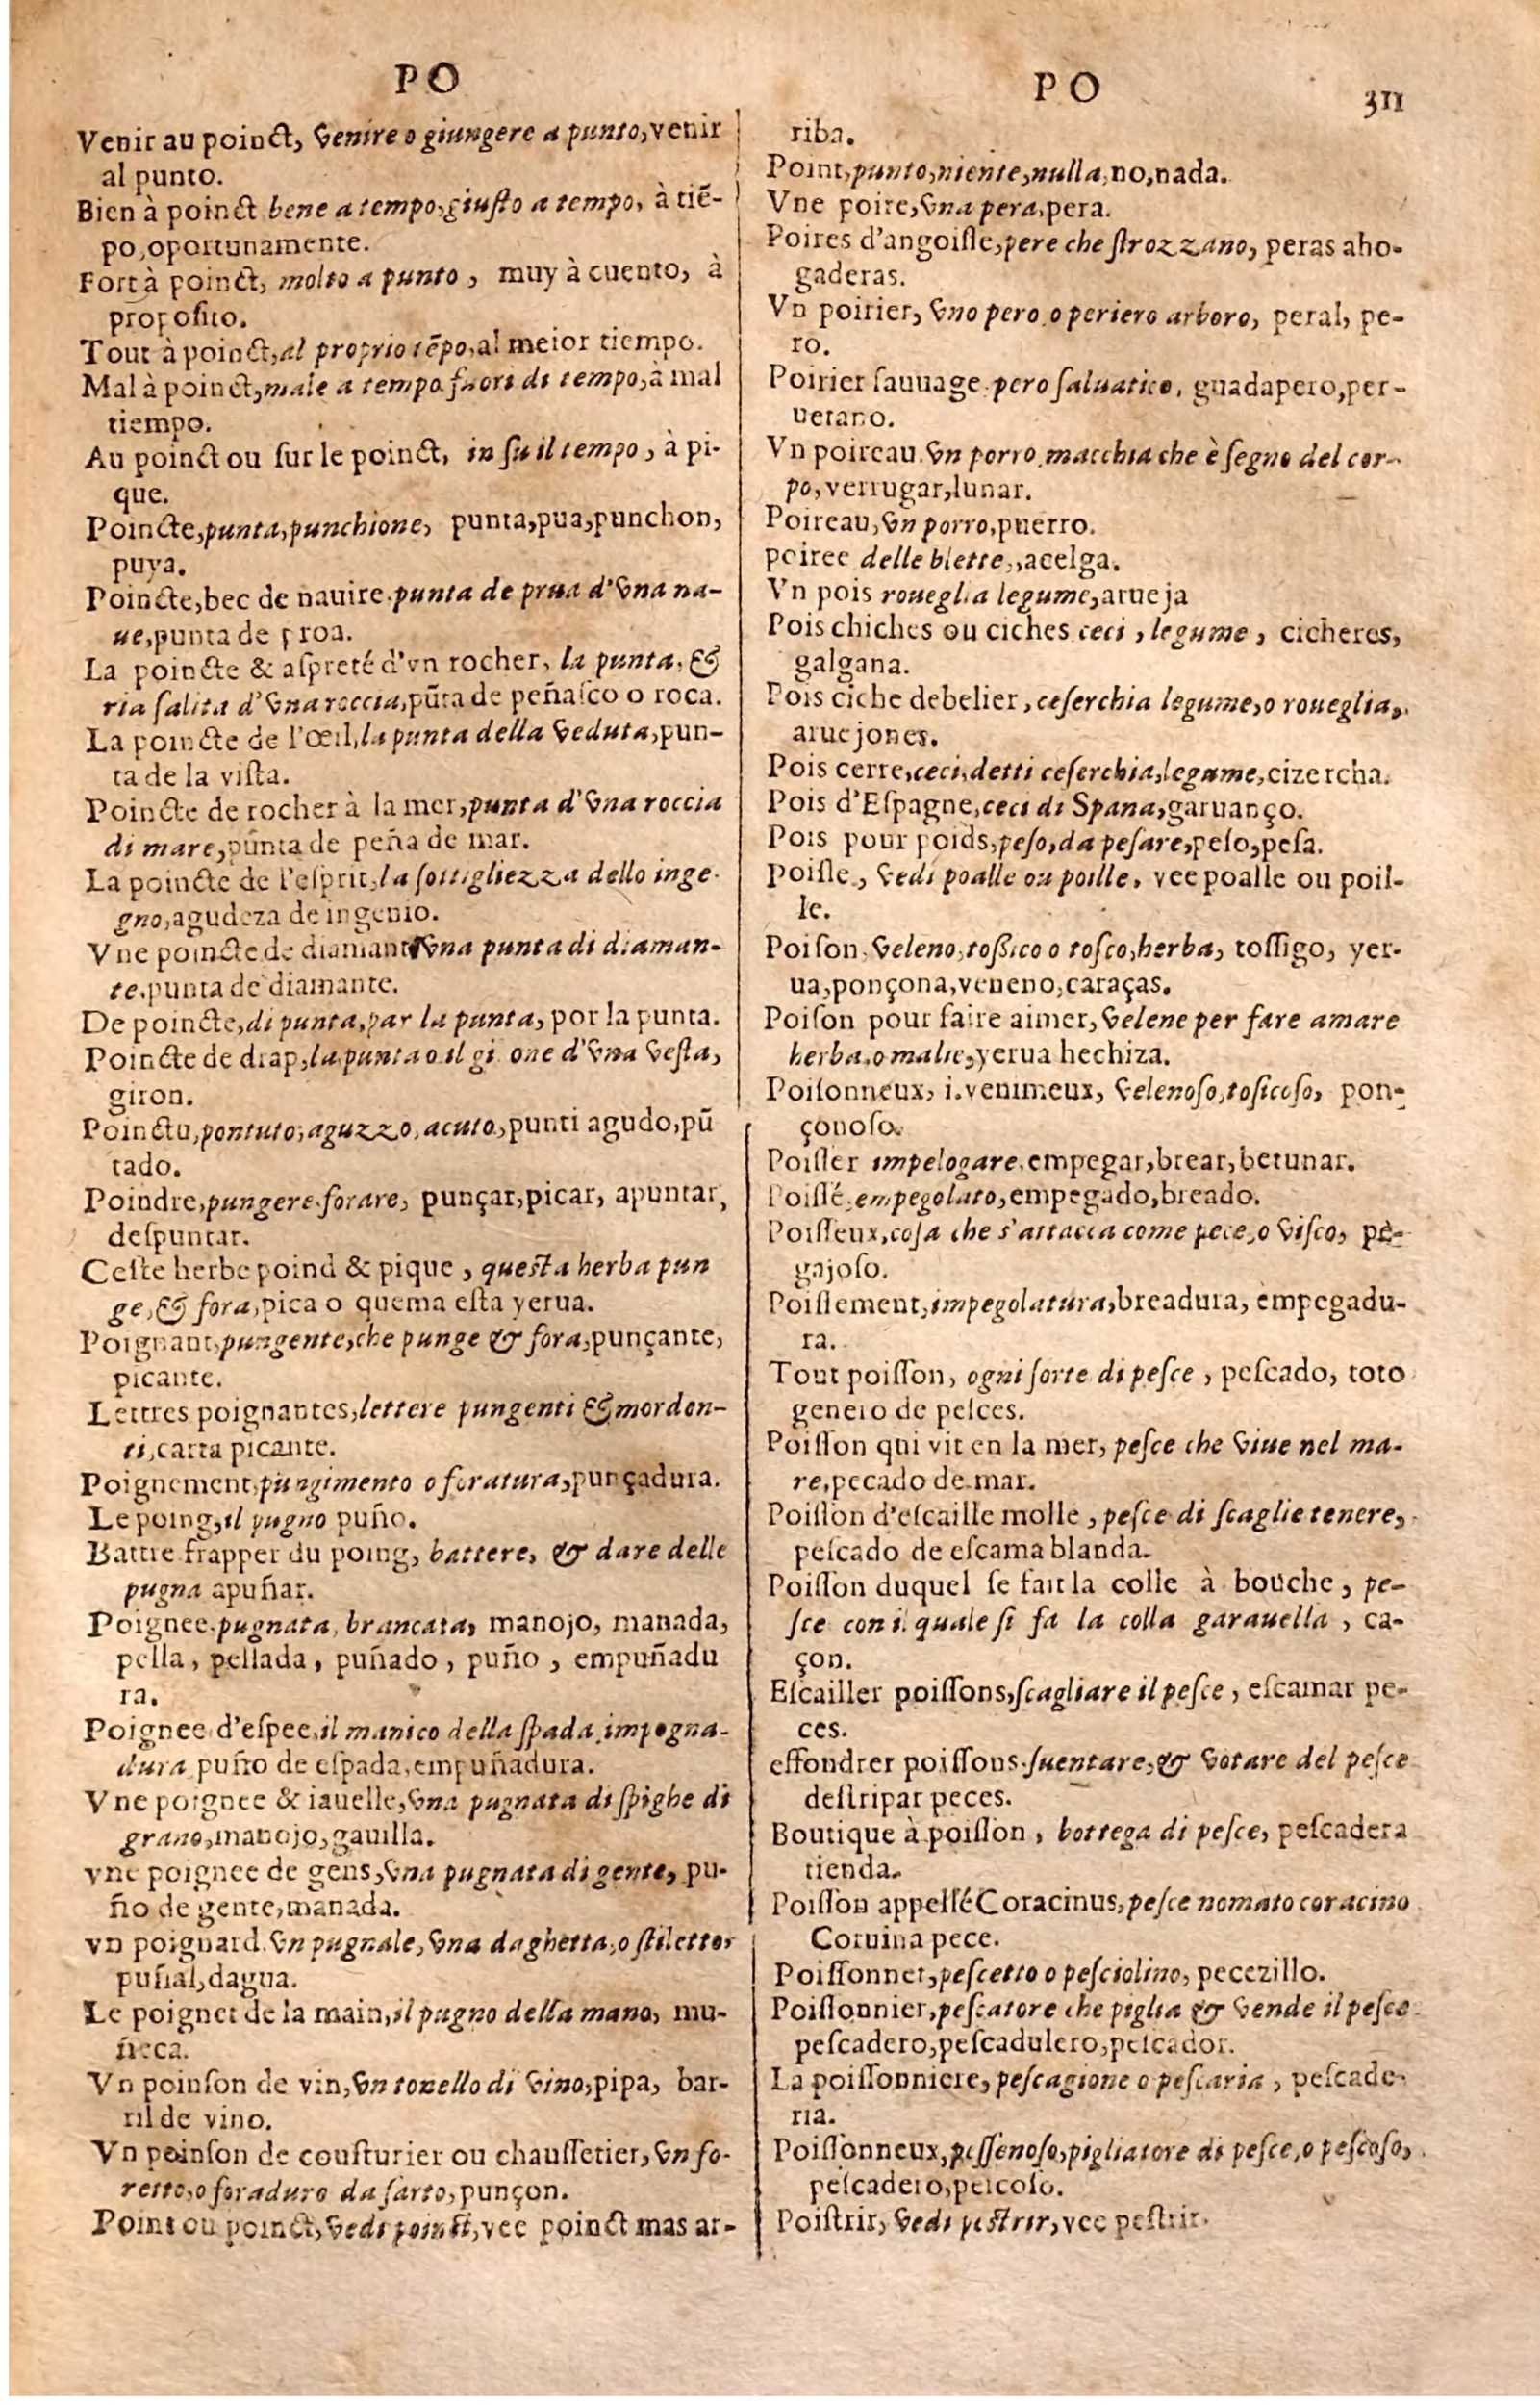 PO
Venir au poinct, venire o giungere a punto, venir
al punto.
Bien à poinct bene a tempo, giuſto a tempo, à tiẽ-
po, oportunamente.
Fort à poinct, molto a punto, muy à cuento, à
propoſito.
Tout à poinct, al proprio tẽpo, al meior tiempo.
Mal à poinct, male a tempo fuori di tempo, à mal
tiempo.
Au poinct ou ſur le poinct, in ſu il tempo, à pi-
que.
Poincte, punta, punchione, punta, pua, punchon,
puya.
Poincte, bec de nauire. punta de prua d'vna na-
ue, punta de proa.
La poincte & aſpreté d'vn rocher, la punta, &
ria ſalita d'vna roccia, pũta de peñaſco o roca.
La poincte de l'œil, la punta della veduta, pun-
ta de la viſta.
Poincte de rocher à la mer, punta d'vna roccia
di mare, punta de peña de mar.
La poincte de l'eſprit, la ſottigliezza dello inge-
gno, agudeza de ingenio.
Vne poincte de diamant vna punta di diaman-
te. punta de diamante.
De poincte, di punta, par la punta, por la punta.
Poincte de drap, la punta o il gi one d'vna veſta,
giron.
Poinctu, pontuto, aguzzo, acuto, punti agudo, pũ
tado.
Poindre, pungere. forare, punçar, picar, apuntar,
deſpuntar.
Ceſte herbe poind & pique, queſta herba pun
ge, & fora, pica o quema eſta yerua.
Poignant, pungente, che punge & fora, punçante,
picante.
Lettres poignantes, lettere pungenti & morden-
ti, carta picante.
Poignement, pungimento o foratura, punçadura.
Le poing, il pugno puño.
Battre frapper du poing, battere, & dare delle
pugna apuñar.
Poignee. pugnata, brancata, manojo, manada,
pella, pellada, puñado, puño, empuñadu
ra.
Poignee d'eſpee, il manico della ſpada. impogna-
dura puño de eſpada, empuñadura.
Vne poignee & iauelle, vna pugnata di ſpighe di
grano, manojo, gauilla.
vne poignee de gens, vna pugnata di gente, pu-
ño de gente, manada.
vn poignard. vn pugnale, vna daghetta, o ſtiletto,
puñal, dagua.
Le poignet de la main, il pugno della mano, mu-
ñeca.
Vn poinſon de vin, vn tonello di vino, pipa, bar-
ril de vino.
Vn poinſon de couſturier ou chauſſetier, vn fo-
retto, o foraduro da ſarto, punçon.
Point ou poinct, vedi poinct, vee poinct mas ar-
PO
311
riba.
Point, punto, niente, nulla, no, nada.
Vne poire, vna pera, pera.
Poires d'angoiſſe, pere che ſtrozzano, peras aho-
gaderas.
Vn poirier, vno pero, o periero arboro, peral, pe-
ro.
Poirier ſauuage. pero ſaluatico, guadapero, per-
uetano.
Vn poireau. vn porro. macchia che è ſegno del cor-
po, verrugar, lunar.
Poireau, vn porro, puerro.
poiree delle blette,, acelga.
Vn pois roueglia legume, arueja
Pois chiches ou ciches ceci, legume, cicheres,
galgana.
Pois ciche debelier, ceſerchia legume, o roueglia,
aruejones.
Pois cerre, ceci, detti ceſerchia, legume, cizercha.
Pois d'Eſpagne, ceci di Spana, garuanço.
Pois pour poids, peſo, da peſare, peſo, peſa.
Poiſle, vedi poalle ou poille, vee poalle ou poil-
le.
Poiſon, veleno, toßico o toſco, herba, toſſigo, yer-
ua, ponçona, veneno, caraças.
Poiſon pour faire aimer, velene per fare amare
herba. o malie, yerua hechiza.
Poiſonneux, i. venimeux, velenoſo, toſicoſo, pon-
çonoſo.
Poiſſer impelogare. empegar, brear, betunar.
Poiſſé, empegolato, empegado, breado.
Poiſſeux, coſa che s'attacca come pece, o viſco, pe-
gajoſo.
Poiſſement, impegolatura, breadura, empegadu-
ra.
Tout poiſſon, ogni ſorte di peſce, peſcado, toto
genero de peſces.
Poiſſon qui vit en la mer, peſce che viue nel ma-
re, pecado de mar.
Poiſſon d'eſcaille molle, peſce di ſcaglie tenere,
peſcado de eſcama blanda.
Poiſſon duquel ſe fait la colle à bouche, pe-
ſce con il quale ſi fa la colla garauella, ca-
çon.
Eſcailler poiſſons, ſcagliare il peſce, eſcamar pe-
ces.
effondrer poiſſons. ſuentare, & votare del peſce
deſtripar peces.
Boutique à poiſſon, bottega di peſce, peſcadera
tienda.
Poiſſon appellé Coracinus, peſce nomato coracino
Coruina pece.
Poiſſonnet, peſcetto o peſciolino, pecezillo.
Poiſſonnier, peſcatore che piglia & vende il peſce
peſcadero, peſcadulero, peſcador.
La poiſſonniere, peſcagione o peſcaria, peſcade-
ria.
Poiſſonneux, peſſenoſo, pigliatore di peſce, o peſcoſo,
peſcadero, peſcoſo.
Poiſtrir, vedi peſtrir, vee peſtrir.